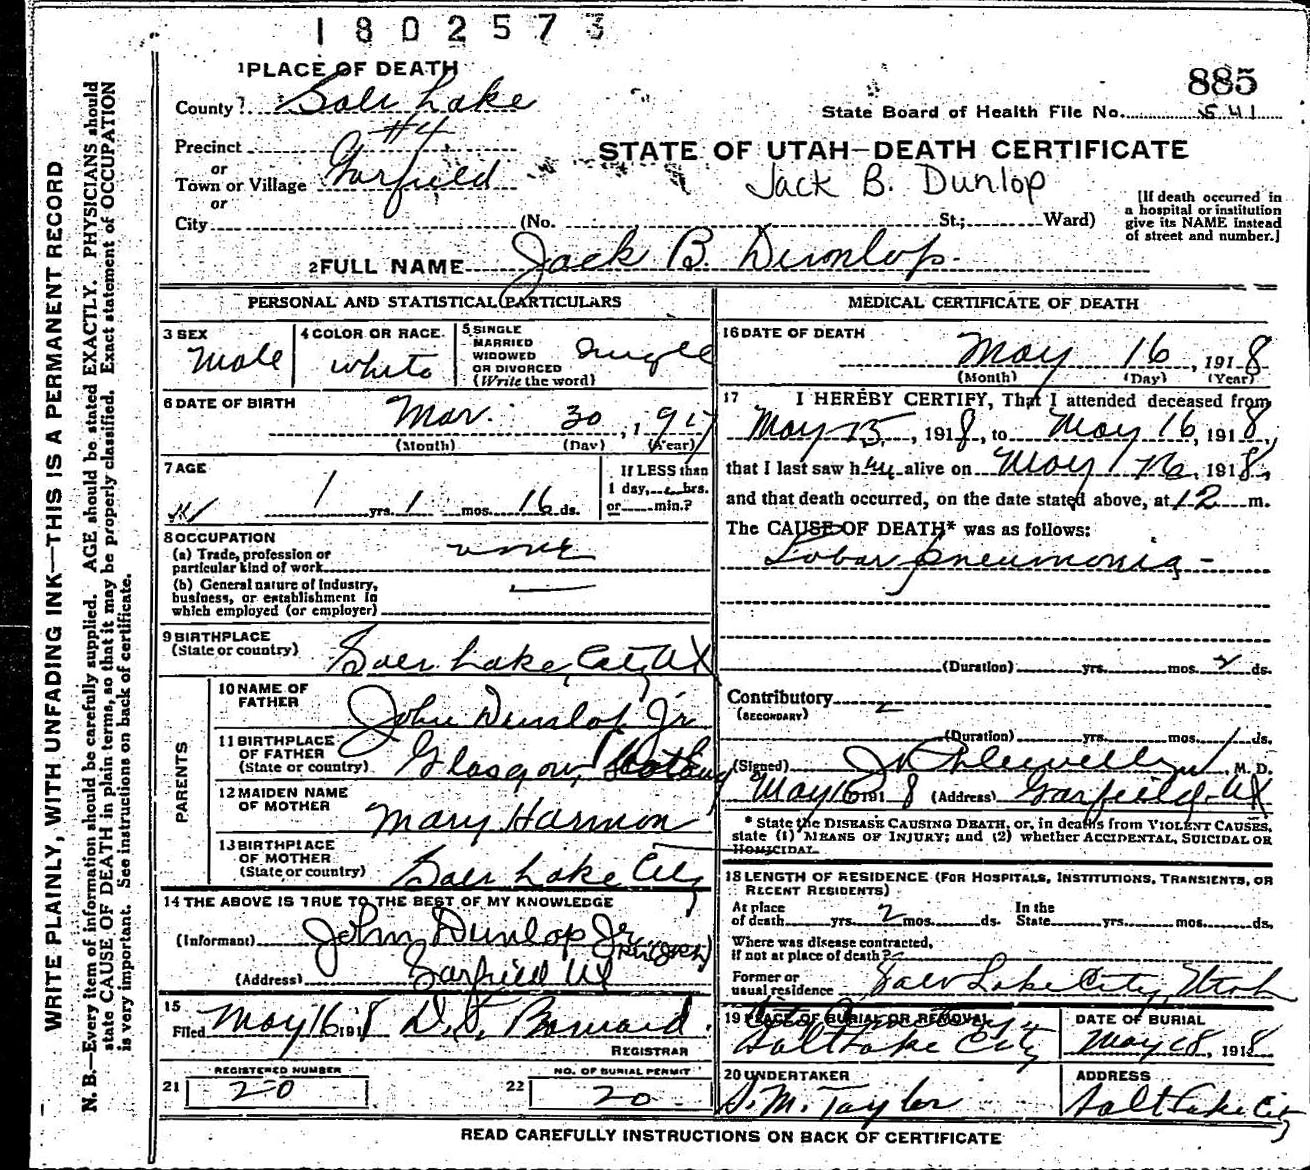 1802573
885
1 PLACE OF DEATH
County Salt Lake
State Board of Health File No. 541
Precinct #4
STATE OF UTAH—DEATH CERTIFICATE
or
Town or Village Garfield
Jack B. Dunlop
or
City (No. St.; Ward)
[If death occurred in a hospital or institution give its NAME instead of street and number.]
2 FULL NAME Jack B. Dunlop
PERSONAL AND STATISTICAL PARTICULARS
3 SEX Male
4 COLOR OR RACE. white
5 SINGLE MARRIED WIDOWED OR DIVORCED (Write the word) Single
6 DATE OF BIRTH Mar. 30, 1917
(Month) (Day) (Year)
7 AGE 1 yrs. 1 mos. 16 ds.
If LESS than 1 day, hrs. or min.?
8 OCCUPATION
(a) Trade, profession or particular kind of work none
(b) General nature of Industry, business, or establishment in which employed (or employer) —
9 BIRTHPLACE (State or country) Salt Lake City, Ut
PARENTS
10 NAME OF FATHER John Dunlop Jr
11 BIRTHPLACE OF FATHER (State or country) Glasgow, Scotland
12 MAIDEN NAME OF MOTHER Mary Harmon
13 BIRTHPLACE OF MOTHER (State or country) Salt Lake City
14 THE ABOVE IS TRUE TO THE BEST OF MY KNOWLEDGE
(Informant) John Dunlop Jr
(Address) Garfield Ut
15
Filed May 16 1918 D. T. Barnard.
REGISTRAR
REGISTERED NUMBER
21 20
NO. OF BURIAL PERMIT
22 20
MEDICAL CERTIFICATE OF DEATH
16 DATE OF DEATH May 16, 1918
(Month) (Day) (Year)
17 I HEREBY CERTIFY, That I attended deceased from
May 15, 1918, to May 16, 1918,
that I last saw him alive on May 16, 1918,
and that death occurred, on the date stated above, at 12 m.
The CAUSE OF DEATH* was as follows:
Lobar pneumonia -
(Duration) yrs. mos. 2 ds.
Contributory
(SECONDARY)
(Duration) yrs. mos. 1 ds.
(Signed) Llewellyn, M. D.
May 16 1918 (Address) Garfield Ut
* State the DISEASE CAUSING DEATH, or, in deaths from VIOLENT CAUSES, state (1) MEANS OF INJURY; and (2) whether ACCIDENTAL, SUICIDAL OR HOMICIDAL.
18 LENGTH OF RESIDENCE (FOR HOSPITALS, INSTITUTIONS, TRANSIENTS, OR RECENT RESIDENTS)
At place of death yrs. 2 mos. ds. In the State yrs. mos. ds.
Where was disease contracted, if not at place of death?
Former or usual residence Salt Lake City, Utah
19 PLACE OF BURIAL OR REMOVAL City Cemetery Salt Lake City
DATE OF BURIAL May 18, 1918
20 UNDERTAKER S. M. Taylor
ADDRESS Salt Lake City
READ CAREFULLY INSTRUCTIONS ON BACK OF CERTIFICATE
WRITE PLAINLY, WITH UNFADING INK—THIS IS A PERMANENT RECORD
N. B.—Every item of information should be carefully supplied. AGE should be stated EXACTLY. PHYSICIANS should
state CAUSE OF DEATH in plain terms, so that it may be properly classified. Exact statement of OCCUPATION
is very important. See instructions on back of certificate.